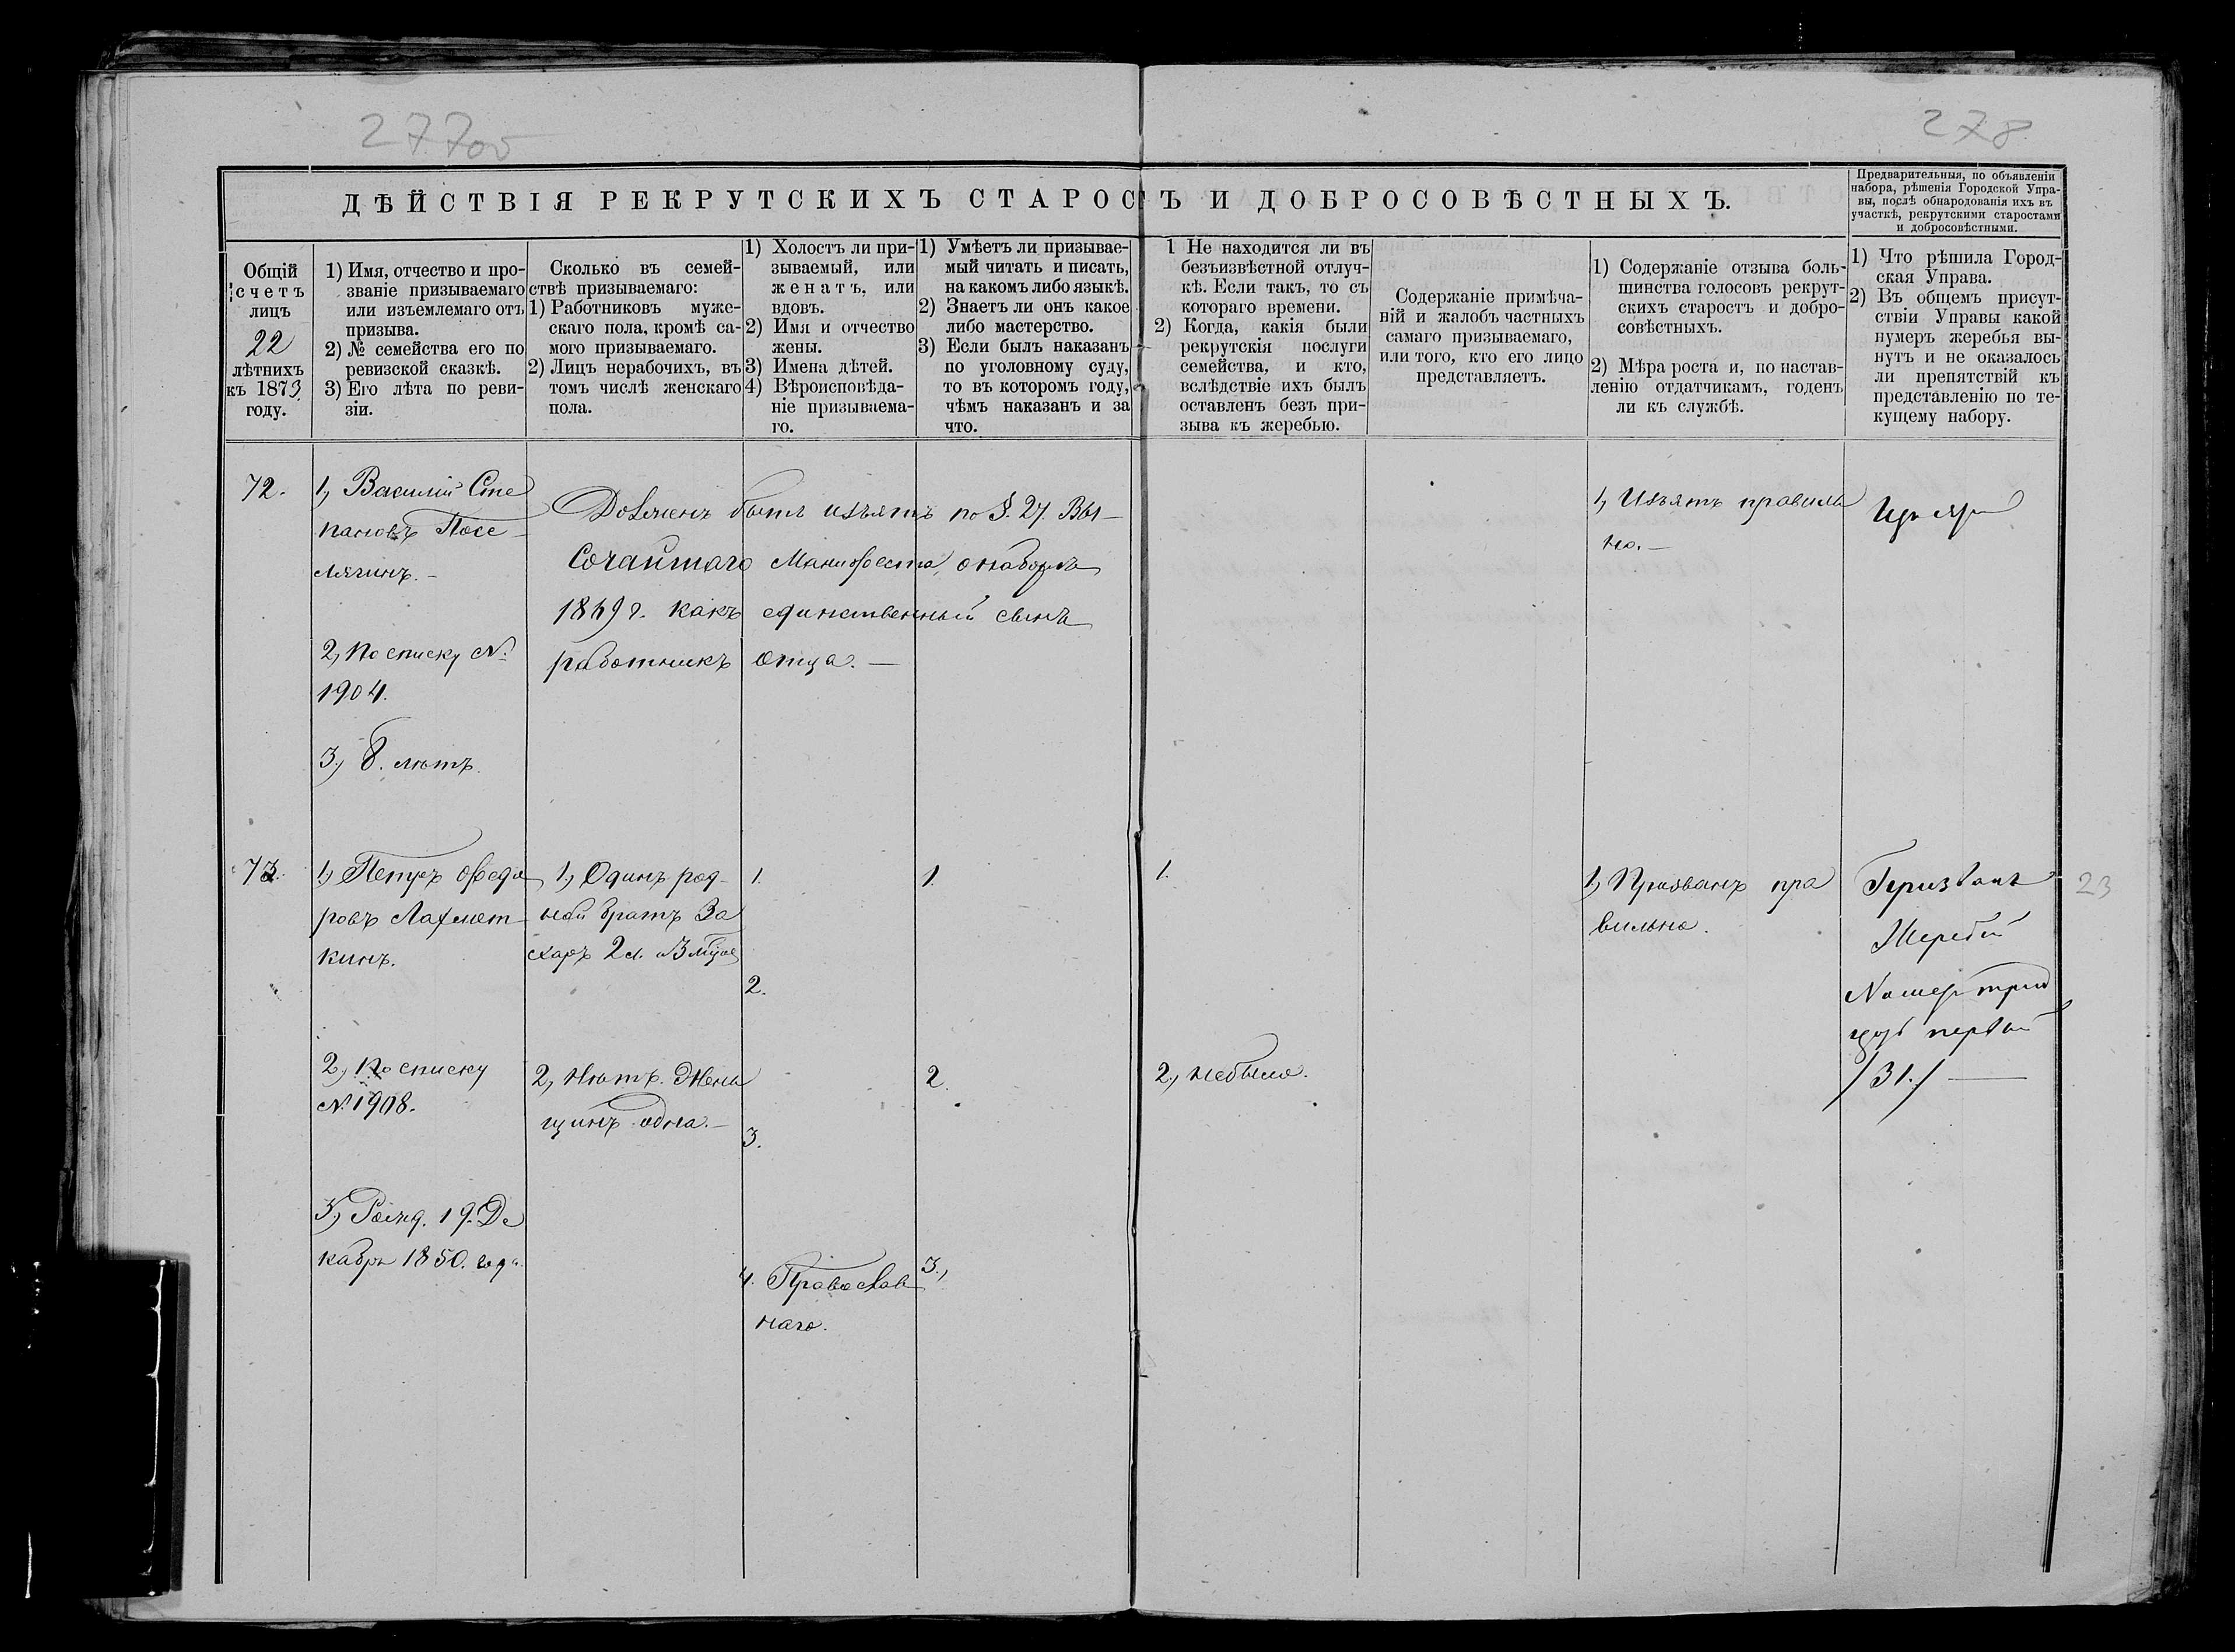 277об
278
ДѢЙСТВІЯ РЕКРУТСКИХЪ СТАРОСТЪ И ДОБРОСОВѢСТНЫХЪ.
Предварительныя, по объявленіи
набора, рѣшенія Городской Упра-
вы, послѣ обнародованія ихъ въ
участкѣ, рекрутскими старостами
и добросовѣстными.
Общій
счетъ
лицъ
22
лѣтнихъ
къ 1873
году.
1) Имя, отчество и про-
званіе призываемаго
или изъемлемаго отъ
призыва.
2) № семейства его по
ревизской сказкѣ.
3) Его лѣта по реви-
зіи.
Сколько въ семей-
ствѣ призываемаго:
1) Работниковъ муже-
скаго пола, кромѣ са-
мого призываемаго.
2) Лицъ нерабочихъ, въ
томъ числѣ женскаго
пола.
1) Холостъ ли при-
зываемый, или
женатъ, или
вдовъ.
2) Имя и отчество
жены.
3) Имена дѣтей.
4) Вѣроисповѣда-
ніе призываема-
го.
1) Умѣетъ ли призывае-
мый читать и писать,
на какомъ либо языкѣ.
2) Знаетъ ли онъ какое
либо мастерство.
3) Если былъ наказанъ
по уголовному суду,
то въ которомъ году,
чѣмъ наказанъ и за
что.
1 Не находится ли въ
безъизвѣстной отлуч-
кѣ. Если такъ, то съ
котораго времени.
2) Когда, какія были
рекрутскія послуги
семейства, и кто,
вслѣдствіе ихъ былъ
оставленъ безъ при-
зыва къ жеребью.
Содержаніе примѣча-
ній и жалобъ частныхъ
самаго призываемаго,
или того, кто его лицо
представляетъ.
1) Содержаніе отзыва боль-
шинства голосовъ рекрут-
скихъ старостъ и добро-
совѣстныхъ.
2) Мѣра роста и, по настав-
ленію отдатчикамъ, годенъ
ли къ службѣ.
1) Что рѣшила Город-
ская Управа.
2) Въ общемъ присут-
ствіи Управы какой
нумеръ жеребья вы-
нутъ и не оказалось
ли препятствій къ
представленію по те-
кущему набору.
72.
1, Василій Сте
пановъ Посе-
лягинъ.-
2, По списку №
1904.
3, 8. лѣтъ.
Долженъ быть изъятъ по §. 27. Вы-
сочайшаго Манифеста, о наборѣ
1869 г. какъ единственный сынъ
работникъ отца.-
1, Изъятъ правиль
но.-
73.
1, Петръ Ѳедо
ровъ Лахмот-
кинъ.
2, По списку
№ 1908.
3, Рожд. 19. Де
кабря 1850. года.
1, Одинъ род-
ной братъ За
харъ
2, Нѣтъ. Жен
щинъ одна.-
1.
2.
3.
4. Православ
наго.
1.
2.
3.,
1.
2, небыло.
1, Призванъ пра
вильно.
Призванъ
Жеребій
Номеръ трид
цать первый
/31./
23